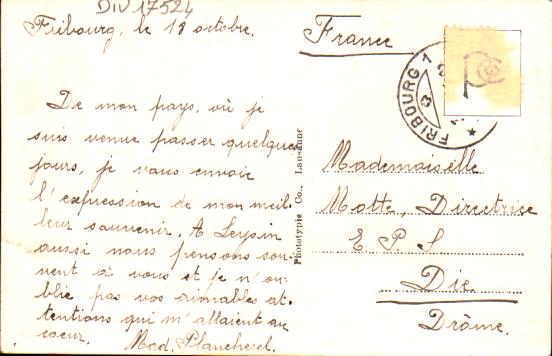 DIV 17524
Fribourg, le 13 octobre.
France
FRIBOURG 1
De mon pays, où je
suis venue passer quelques
jours, je vous envoie
l'expression de mon meil-
leur souvenir. A Leysin
aussi nous pensons sou-
vent à vous et je n'ou-
blie pas vos aimables at-
tentions qui m'allaient au
coeur. Mad. Plancherel.
Phototypie Co., Lausanne
Mademoiselle
Motte, Directrice
E P S
Die
Drôme.